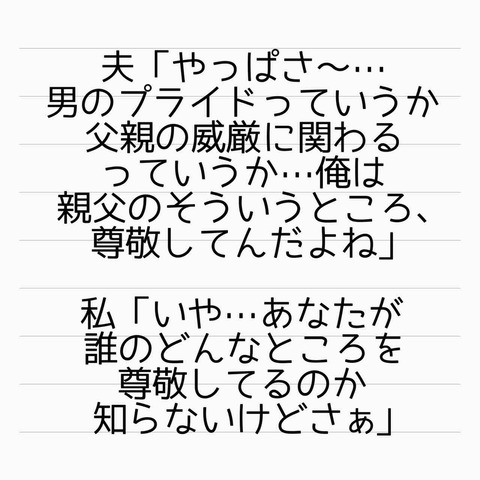 夫「やっぱさ〜…
男のプライドっていうか
父親の威厳に関わる
っていうか…俺は
親父のそういうところ、
尊敬してんだよね」
私「いや…あなたが
誰のどんなところを
尊敬してるのか
知らないけどさぁ」